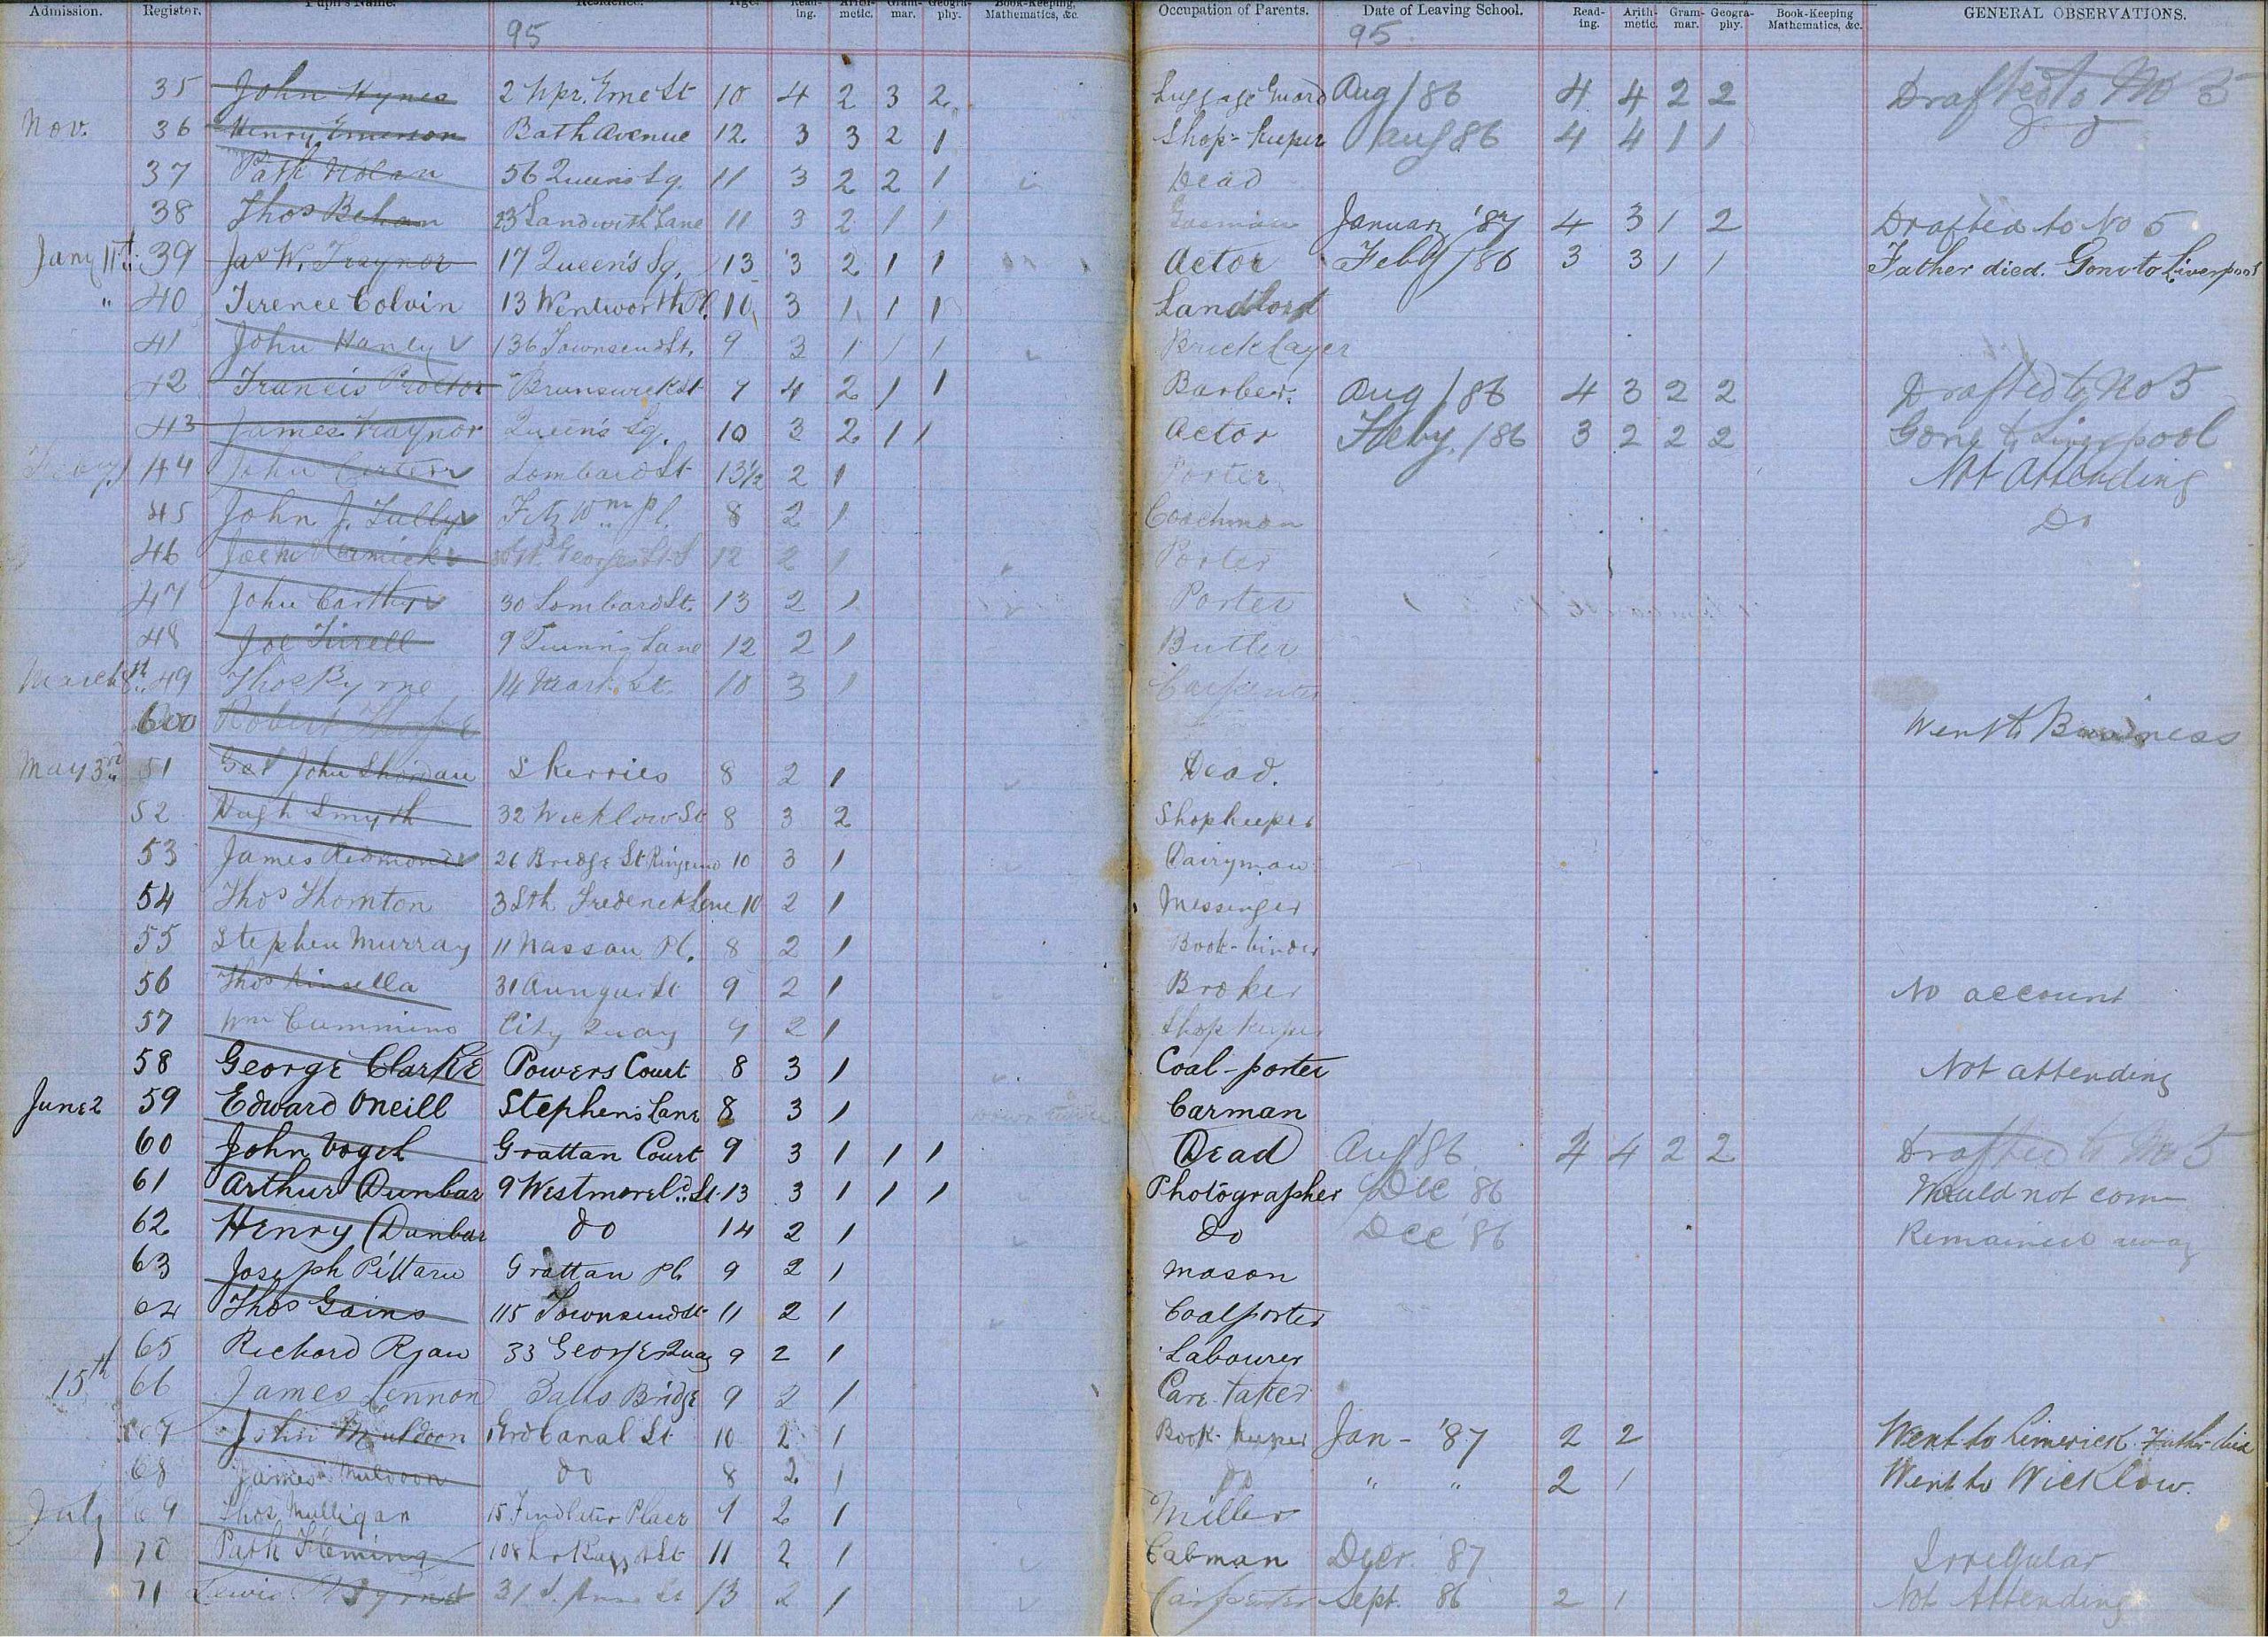 Admission. Register. Pupil's Name. Residence. Age. Read-ing. Arith-metic. Gram-mar. Geogra-phy. Book-Keeping, Mathematics, &c. Occupation of Parents. Date of Leaving School. Read-ing. Arith-metic. Gram-mar. Geogra-phy. Book-Keeping Mathematics, &c. GENERAL OBSERVATIONS.
95 95
35 John Hynes 2 Upr. Erne St 10 4 2 3 2 Luggage Guard Aug / 86 4 4 2 2 Drafted to No 5
Nov. 36 Henry Emerson Bath Avenue 12 3 3 2 1 Shop-keeper Aug 86 4 4 1 1 Do
37 Patk Nolan 56 Queens Sq. 11 3 2 2 1 Dead
38 Thos Behan 23 Sandwith Lane 11 3 2 1 1 January '87 4 3 1 2 Drafted to No 5
Jany 11th 39 Jas W. Traynor 17 Queen's Sq. 13 3 2 1 1 Actor Feby / 86 3 3 1 1 Father died. Gone to Liverpool
" 40 Terence Colvin 13 Wentworth Pl. 10 3 1 1 1 Landlord
41 John Haney 136 Townsend St. 9 3 1 1 1 Bricklayer
42 Francis Proctor Brunswick St 9 4 2 1 1 Barber. Aug / 86 4 3 2 2 Drafted to No 5
43 James Traynor Queen's Sq. 10 3 2 1 1 Actor Feby. / 86 3 2 2 2 Gone to Liverpool
44 John Lombard St 13½ 2 1 Porter Not Attending
45 John J. Tully Fitz Wm Pl. 8 2 1 Coachman Do
46 Gt. Georges St. S 12 2 1 Porter
47 John Carthy 30 Lombard St. 13 2 1 Porter
48 Joe Tirell 9 Lane 12 2 1 Butler
March 8th 49 Thos Byrne 14 Mark St. 10 3 1 Carpenter
600 Robert Went to Business
May 3rd 51 Gal John Skerries 8 2 1 Dead.
52 Hugh Smyth 32 Wicklow St 8 3 2 Shopkeeper
53 James Redmond 26 Bridge St Ringsend 10 3 1 Dairyman
54 Thos Thornton 3 Sth Frederick Lane 10 2 1 Messenger
55 Stephen Murray 11 Nassau Pl. 8 2 1 Book-binder
56 Thos Kinsella 31 Aungier St 9 2 1 Broker No account
57 Wm Cummins City Quay 9 2 1 Shop keeper
58 George Clarke Powers Court 8 3 1 Coal-porter Not attending
June 2 59 Edward Oneill Stephens Lane 8 3 1 Carman
60 John Vogel Grattan Court 9 3 1 1 1 Dead Aug 86 4 4 2 2 Drafted to No 5
61 Arthur Dunbar 9 Westmorel'd St 13 3 1 1 1 Photographer Dec 86 Would not come
62 Henry Dunbar do 14 2 1 do Dec '86 Remained away
63 Joseph Pittaru Grattan Pl 9 2 1 Mason
64 Thos Gains 115 Townsend St 11 2 1 Coalporter
65 Richard Ryan 33 George's Quay 9 2 1 Labourer
15th 66 James Lennon Balls Bridge 9 2 1 Care-taker
67 John Muldoon Grd Canal St 10 2 1 Book-keeper Jan - '87 2 2 Went to Limerick. Father died
68 James Muldoon do 8 2 1 do " " 2 1 Went to Wicklow.
July 69 Thos Mulligan 15 Findlater Place 9 2 1 Miller
70 Patk Fleming 108 Lr Baggot St 11 2 1 Cabman Decr. '87 Irregular
71 Lewis Byrne 31 S. Anne St 13 2 1 Carpenter Sept. 86 2 1 Not Attending